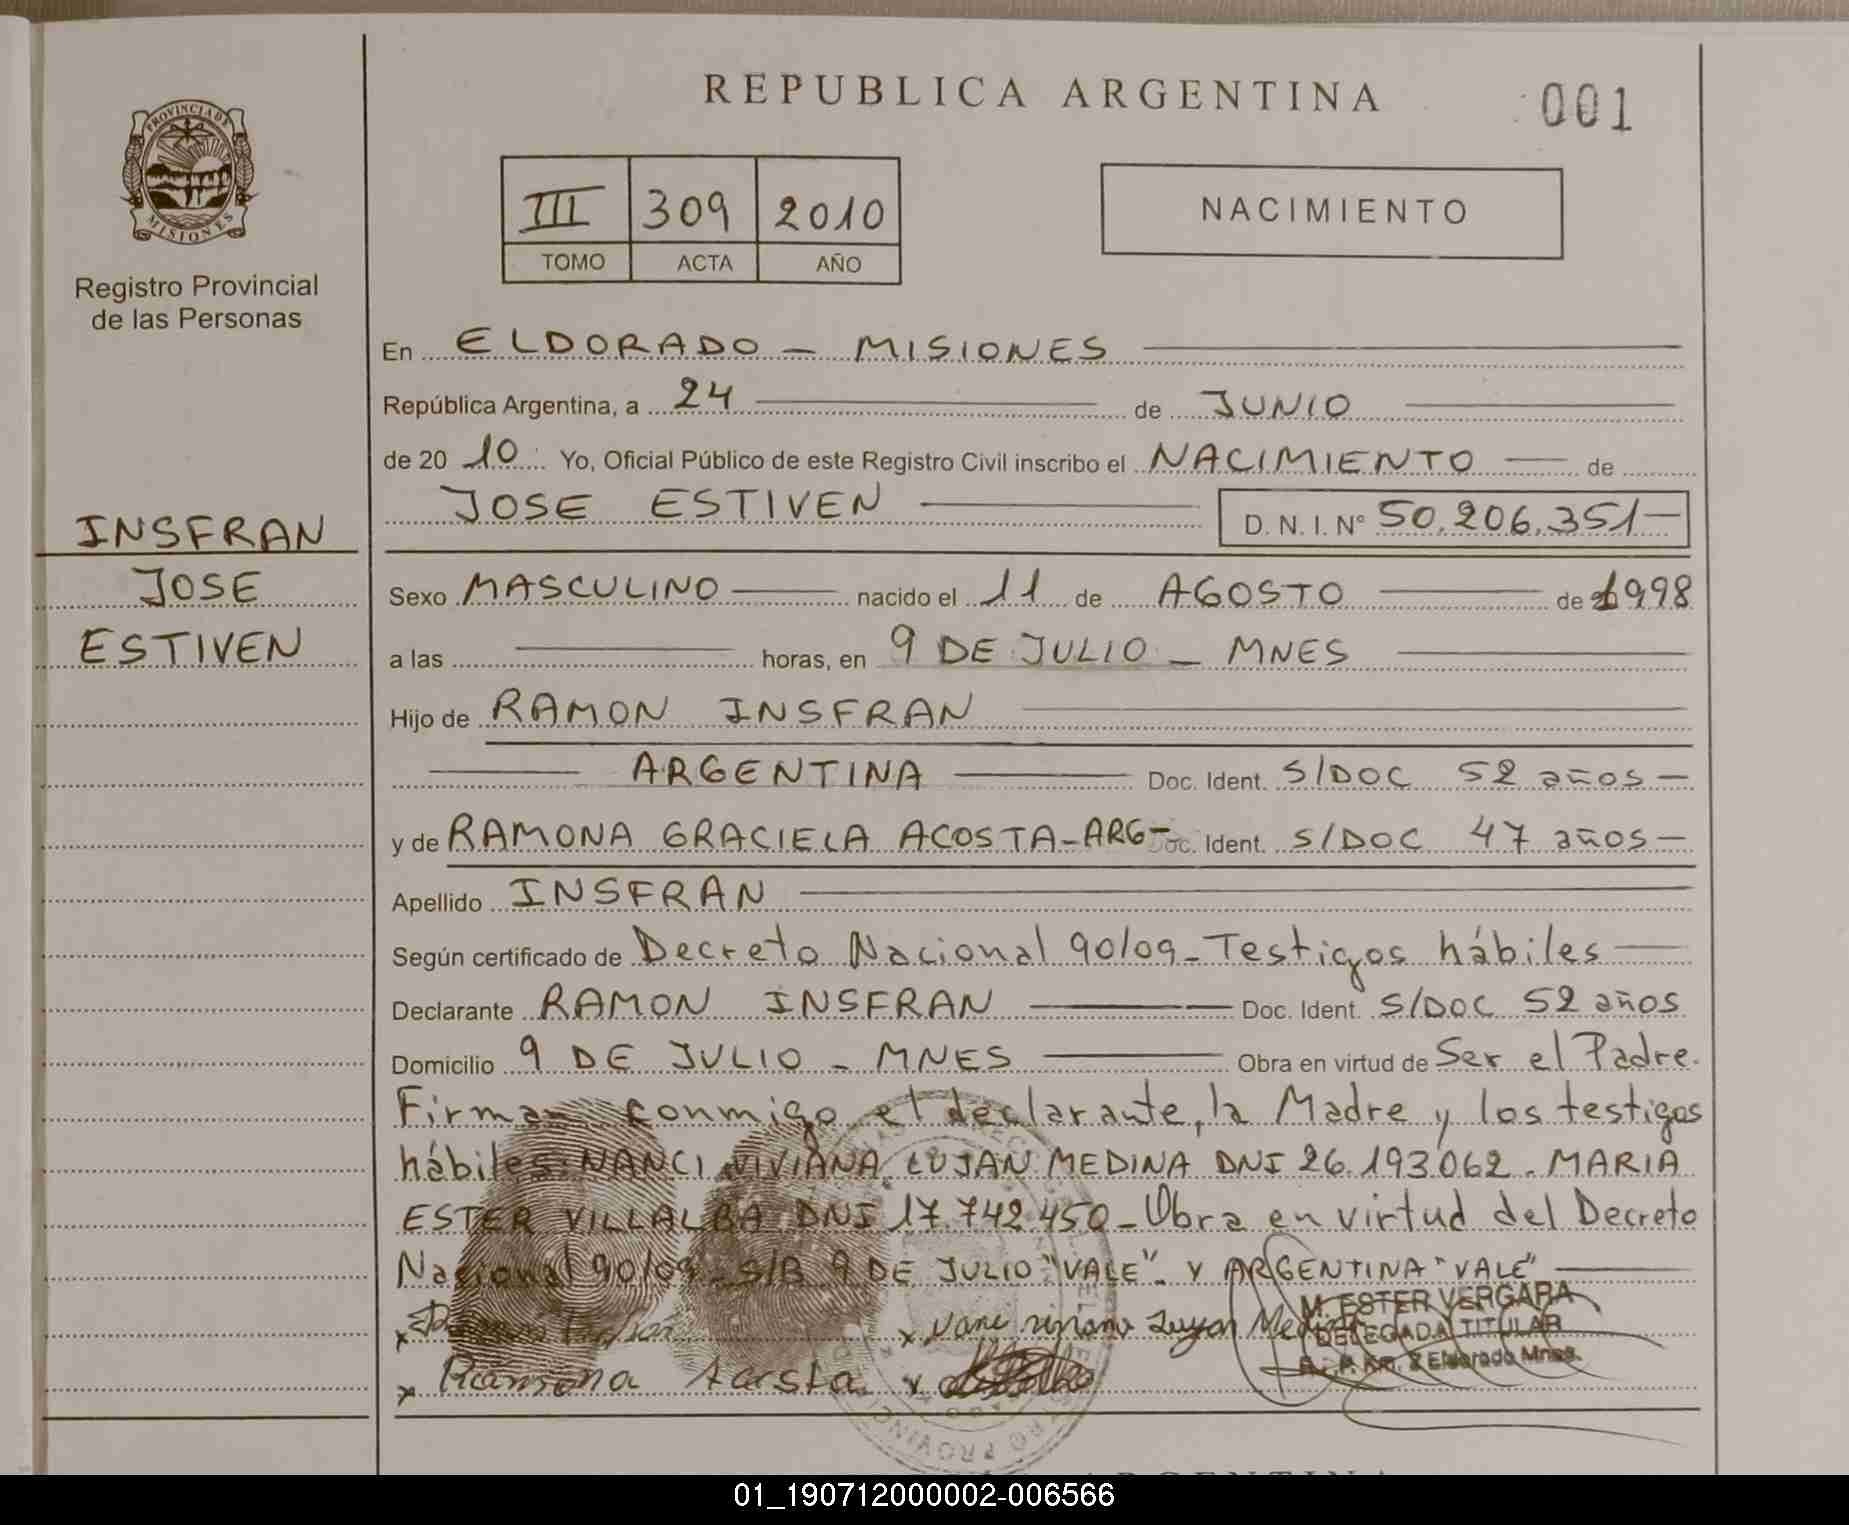 REPUBLICA ARGENTINA
001
PROVINCIA DE
MISIONES
Registro Provincial
de las Personas
III 309 2010
TOMO ACTA AÑO
NACIMIENTO
En ELDORADO - MISIONES
República Argentina, a 24 de JUNIO
de 20 10 Yo, Oficial Público de este Registro Civil inscribo el NACIMIENTO de
JOSE ESTIVEN D. N. I. N° 50.206.351-
INSFRAN
JOSE
ESTIVEN
Sexo MASCULINO nacido el 11 de AGOSTO de 1998
a las horas, en 9 DE JULIO - MNES
Hijo de RAMON INSFRAN
ARGENTINA Doc. Ident. S/DOC 52 años -
y de RAMONA GRACIELA ACOSTA-ARG- Doc. Ident. S/DOC 47 años -
Apellido INSFRAN
Según certificado de Decreto Nacional 90/09 - Testigos hábiles
Declarante RAMON INSFRAN Doc. Ident. S/DOC 52 años
Domicilio 9 DE JULIO - MNES Obra en virtud de Ser el Padre.
Firman conmigo el declarante, la Madre y los testigos
hábiles: NANCI VIVIANA LUJAN MEDINA DNI 26.193.062. MARIA
ESTER VILLALBA DNI 17.742.450 - Obra en virtud del Decreto
Nacional 90/09 - S/B 9 DE JULIO "VALE" - Y ARGENTINA "VALE"
M. ESTER VERGARA
DELEGADA TITULAR
R. P. Km. 2 Eldorado Mnes.
x Ramona Acosta x
ARGENTINA
01_190712000002-006566